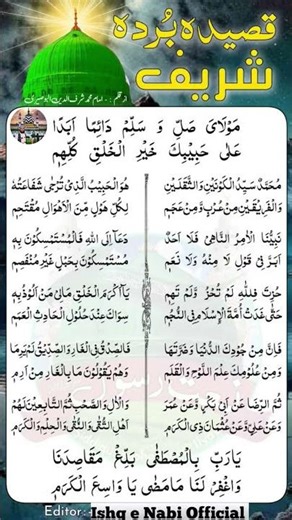 قصیدہ بُردہ
شریف
از قلم :- امام محمد شرف الدین بوصیری
مَوْلَایَ صَلِّ وَ سَلِّمْ دَائِمًا اَبَدًا
عَلٰی حَبِیْبِكَ خَیْرِ الْخَلْقِ کُلِّهِمِ
مُحَمَّدٌ سَیِّدُ الْکَوْنَیْنِ وَالثَّقَلَیْنِ
وَالْفَرِیْقَیْنِ مِنْ عُرْبٍ وَّمِنْ عَجَمٍ
هُوَ الْحَبِیْبُ الَّذِیْ تُرْجٰی شَفَاعَتُهٗ
لِکُلِّ هَوْلٍ مِّنَ الْاَهْوَالِ مُقْتَحِمِ
نَبِیُّنَا الْاٰمِرُ النَّاهِیْ فَلَا اَحَدٌ
اَبَرَّ فِیْ قَوْلِ لَا مِنْهُ وَلَا نَعَمِ
دَعَا اِلَی اللّٰهِ فَالْمُسْتَمْسِکُوْنَ بِهٖ
مُسْتَمْسِکُوْنَ بِحَبْلٍ غَیْرِ مُنْفَصِمِ
حُزْتَ فِللّٰهِ لَمْ تُحْزَ وَلَمْ تَهِمِ
حَتّٰی غَدَتْ اُمَّةُ الْاِسْلَامِ فِی النُّجُمِ
یَا اَکْرَمَ الْخَلْقِ مَالِیْ مَنْ اَلُوْذُ بِهٖ
سِوَاكَ عِنْدَ حُلُوْلِ الْحَادِثِ الْعَمَمِ
فَاِنَّ مِنْ جُوْدِكَ الدُّنْیَا وَضَرَّتَهَا
وَمِنْ عُلُوْمِكَ عِلْمَ اللَّوْحِ وَالْقَلَمِ
فَالصِّدْقُ فِی الْغَارِ وَالصِّدِّیْقُ لَمْ یَرِمَا
وَهُمْ یَقُوْلُوْنَ مَا بِالْغَارِ مِنْ اَرِمِ
ثُمَّ الرِّضَا عَنْ اَبِیْ بَکْرٍ وَّعَنْ عُمَرَ
وَعَنْ عَلِیٍّ وَّعَنْ عُثْمَانَ ذِی الْکَرَمِ
وَالْاٰلِ وَالصَّحْبِ ثُمَّ التَّابِعِیْنَ لَهُمْ
اَهْلِ التُّقٰی وَالنَّقٰی وَالْحِلْمِ وَالْکَرَمِ
یَارَبِّ بِالْمُصْطَفٰی بَلِّغْ مَقَاصِدَنَا
وَاغْفِرْ لَنَا مَا مَضٰی یَا وَاسِعَ الْکَرَمِ
Editor:- Ishq e Nabi Official